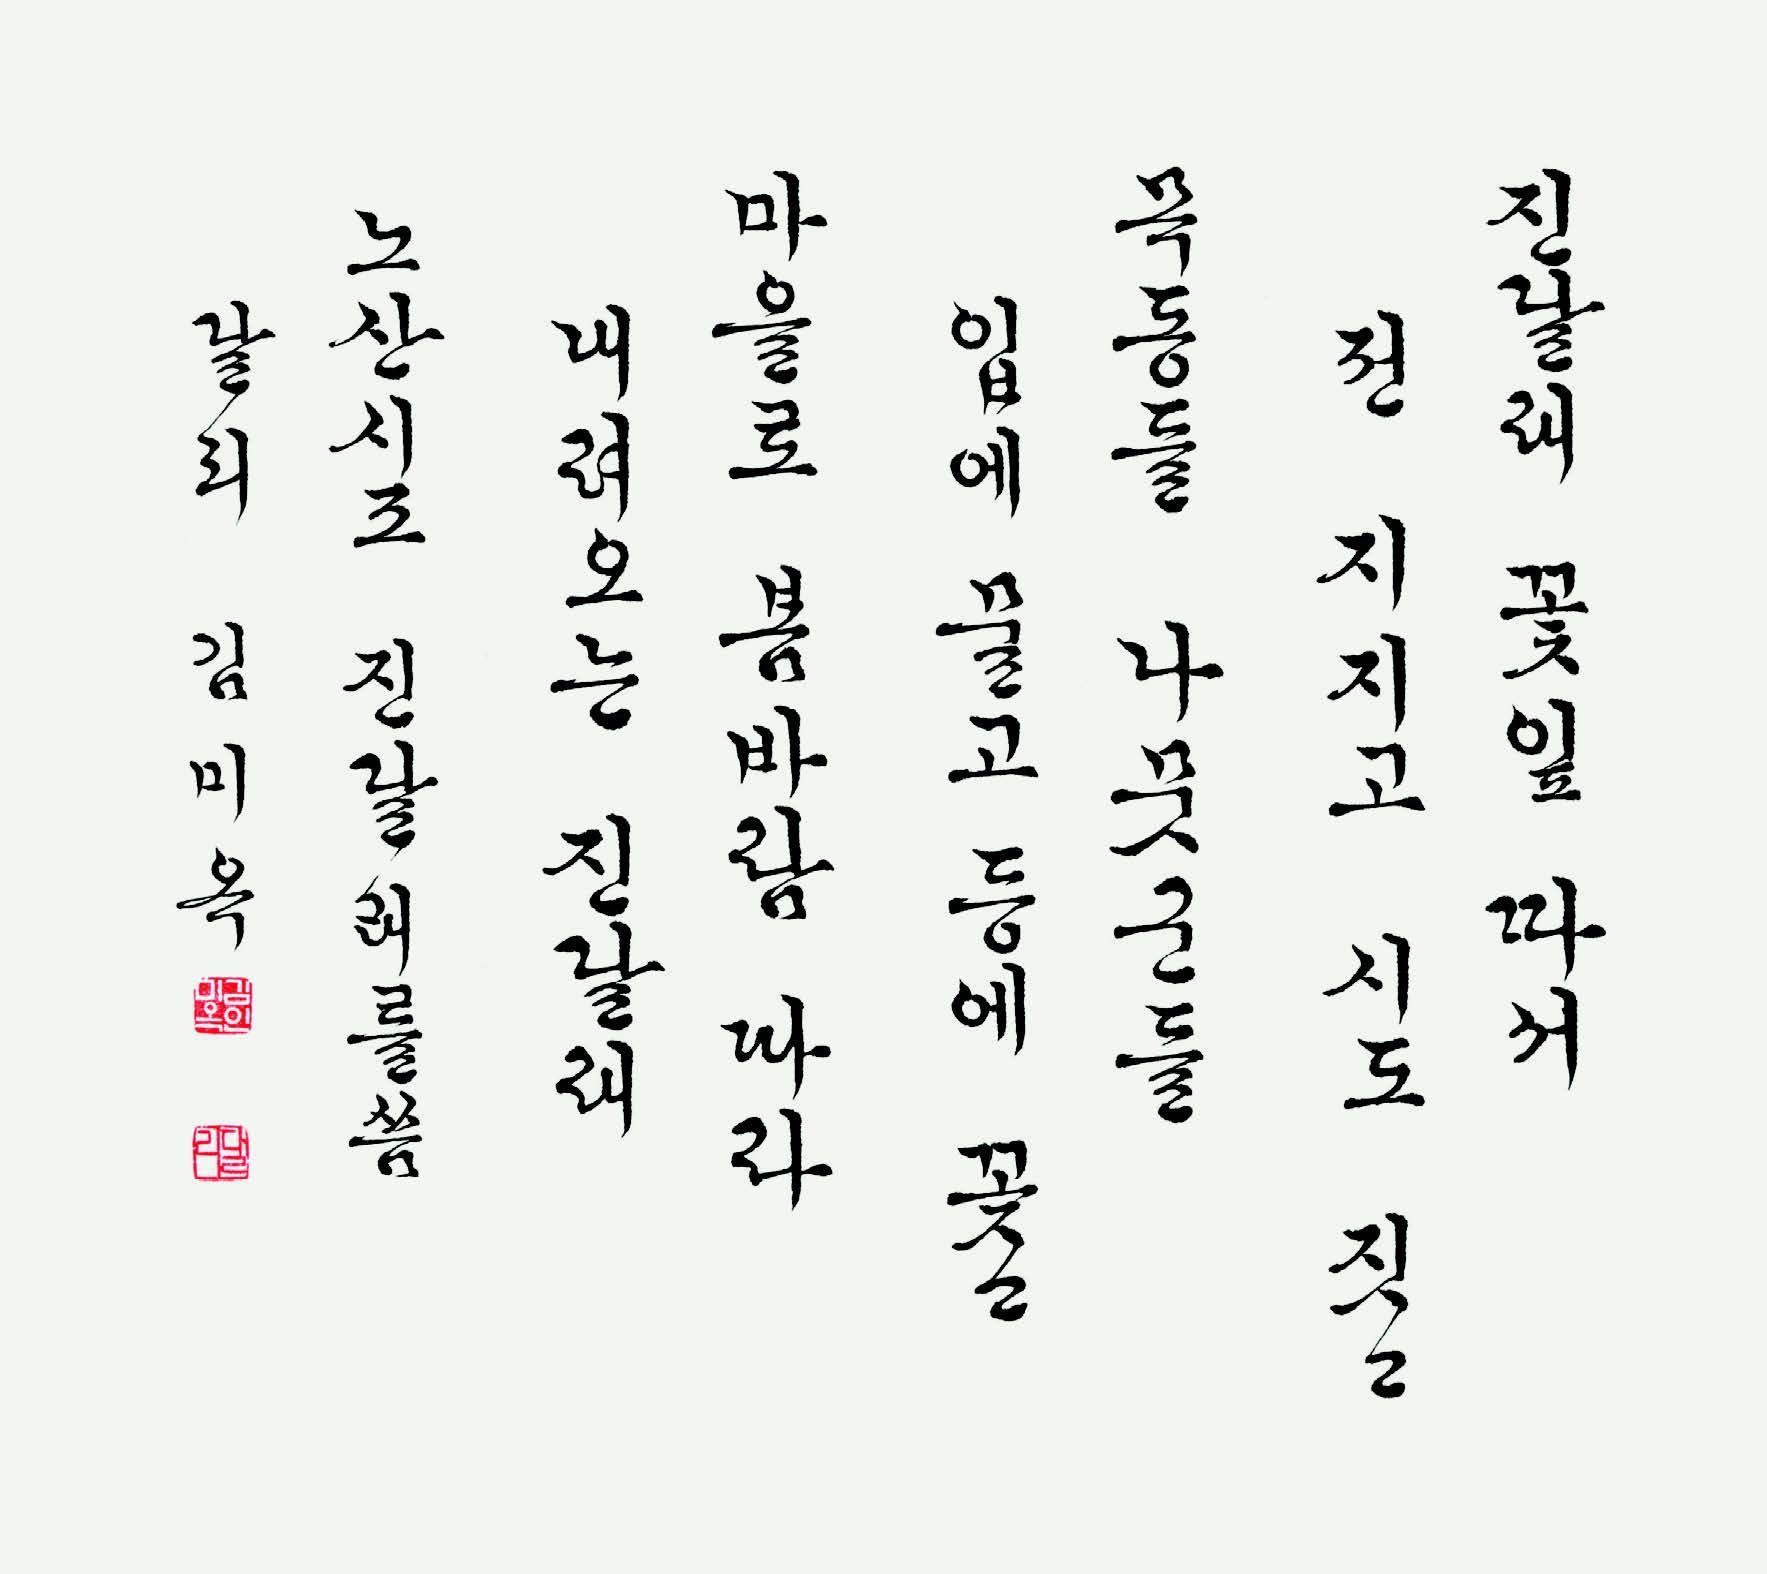 진달래 꽃잎 따서
전 지지고 시도 짓고
목동들 나뭇군들
입에 물고 등에 꽂고
마을로 봄바람 따라
내려오는 진달래
노산시조 진달래를 씀
달리 김미옥
김미옥인
달리